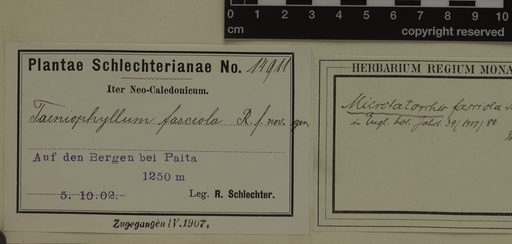 0 1 2 3 4 5 6 7 8 9 10
cm
copyright reserved
Plantae Schlechterianae No. 14911
Iter Neo-Caledonicum.
Taeniophyllum fasciola R. f. nov. gen.
Auf den Bergen bei Paita
1250 m
5. 10. 02.
Leg. R. Schlechter.
Zugegangen IV. 1907.
HERBARIUM REGIUM MONA
Microtatorchis fasciola
in Engl. bot. Jahrb. 39/1907/88.